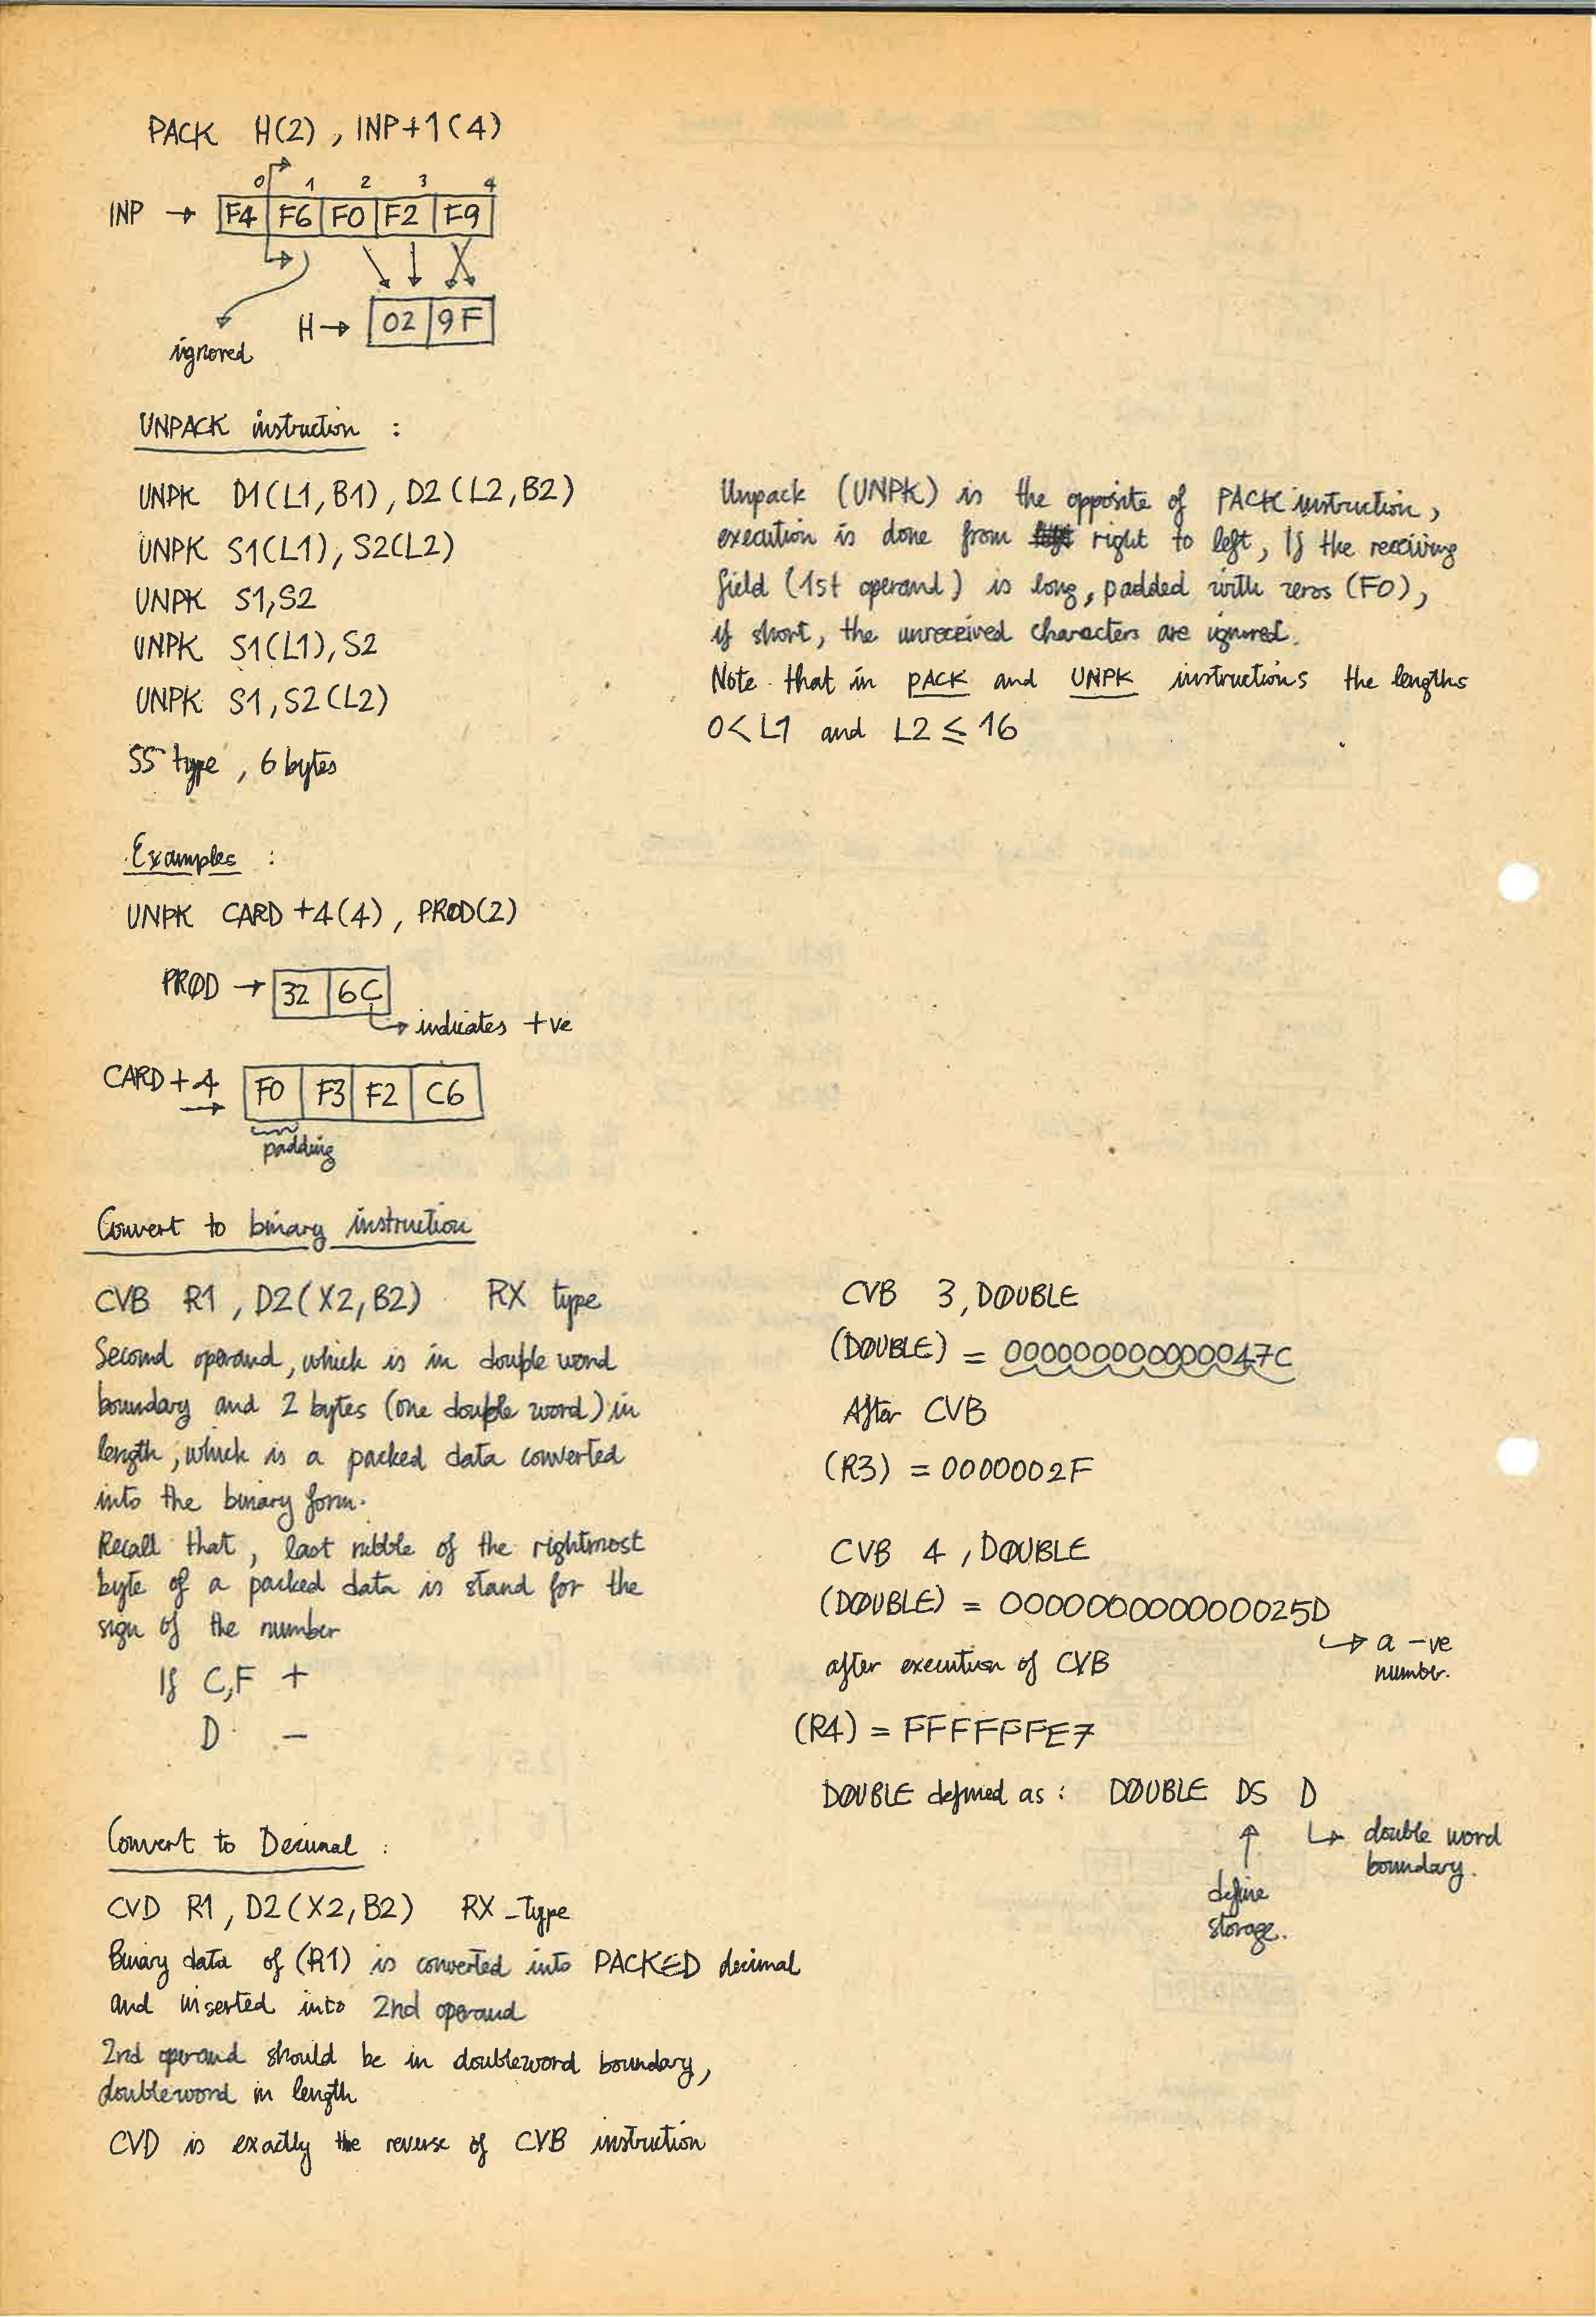 PACK H(2), INP+1(4)
0 1 2 3 4
INP → F4 F6 F0 F2 F9
ignored
H → 02 9F
UNPACK instruction :
UNPK D1(L1,B1), D2(L2,B2)
UNPK S1(L1), S2(L2)
UNPK S1,S2
UNPK S1(L1), S2
UNPK S1, S2(L2)
SS type, 6 bytes
Unpack (UNPK) is the opposite of PACK instruction,
execution is done from right to left, If the receiving
field (1st operand) is long, padded with zeros (F0),
if short, the unreceived characters are ignored.
Note that in PACK and UNPK instructions the lengths
0<L1 and L2 ≤ 16
Examples :
UNPK CARD+4(4), PROD(2)
PRØD → 32 6C
→ indicates +ve
CARD+4 → F0 F3 F2 C6
padding
Convert to binary instruction
CVB R1, D2(X2,B2) RX type
Second operand, which is in double word
boundary and 2 bytes (one double word) in
length, which is a packed data converted
into the binary form.
Recall that, last nibble of the rightmost
byte of a packed data is stand for the
sign of the number
If C,F +
D -
CVB 3, DØUBLE
(DØUBLE) = 000000000000047C
After CVB
(R3) = 0000002F
CVB 4, DØUBLE
(DØUBLE) = 000000000000025D
→ a -ve
number.
after execution of CVB
(R4) = FFFFFFE7
DØUBLE defined as : DØUBLE DS D
→ double word
boundary.
define
storage.
Convert to Decimal :
CVD R1, D2(X2,B2) RX-type
Binary data of (R1) is converted into PACKED decimal
and inserted into 2nd operand
2nd operand should be in doubleword boundary,
doubleword in length
CVD is exactly the reverse of CVB instruction